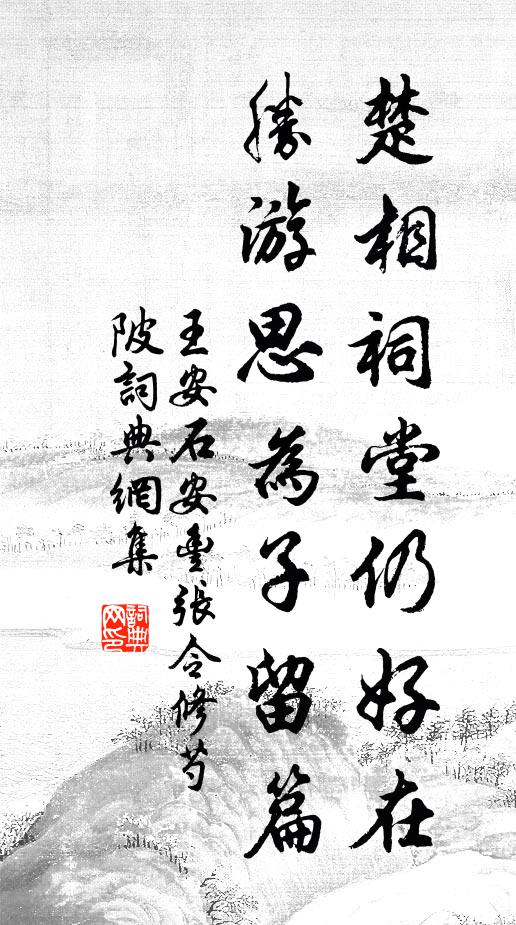 楚相祠堂仍好在
勝游思為子留篇
王安石安豐張令修芍
陂詞典網集
詞典
网印